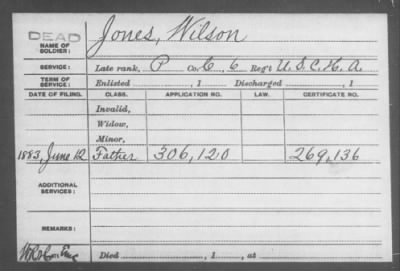 DEAD
NAME OF SOLDIER: Jones, Wilson
SERVICE: Late rank, P Co. C, 6 Reg't U.S.C.H.A.
TERM OF SERVICE: Enlisted , 1 Discharged , 1
DATE OF FILING. CLASS. APPLICATION NO. LAW. CERTIFICATE NO.
Invalid,
Widow,
Minor,
1883, June 12 Father 306,120 269,136
ADDITIONAL SERVICES:
REMARKS:
Died , 1 , at